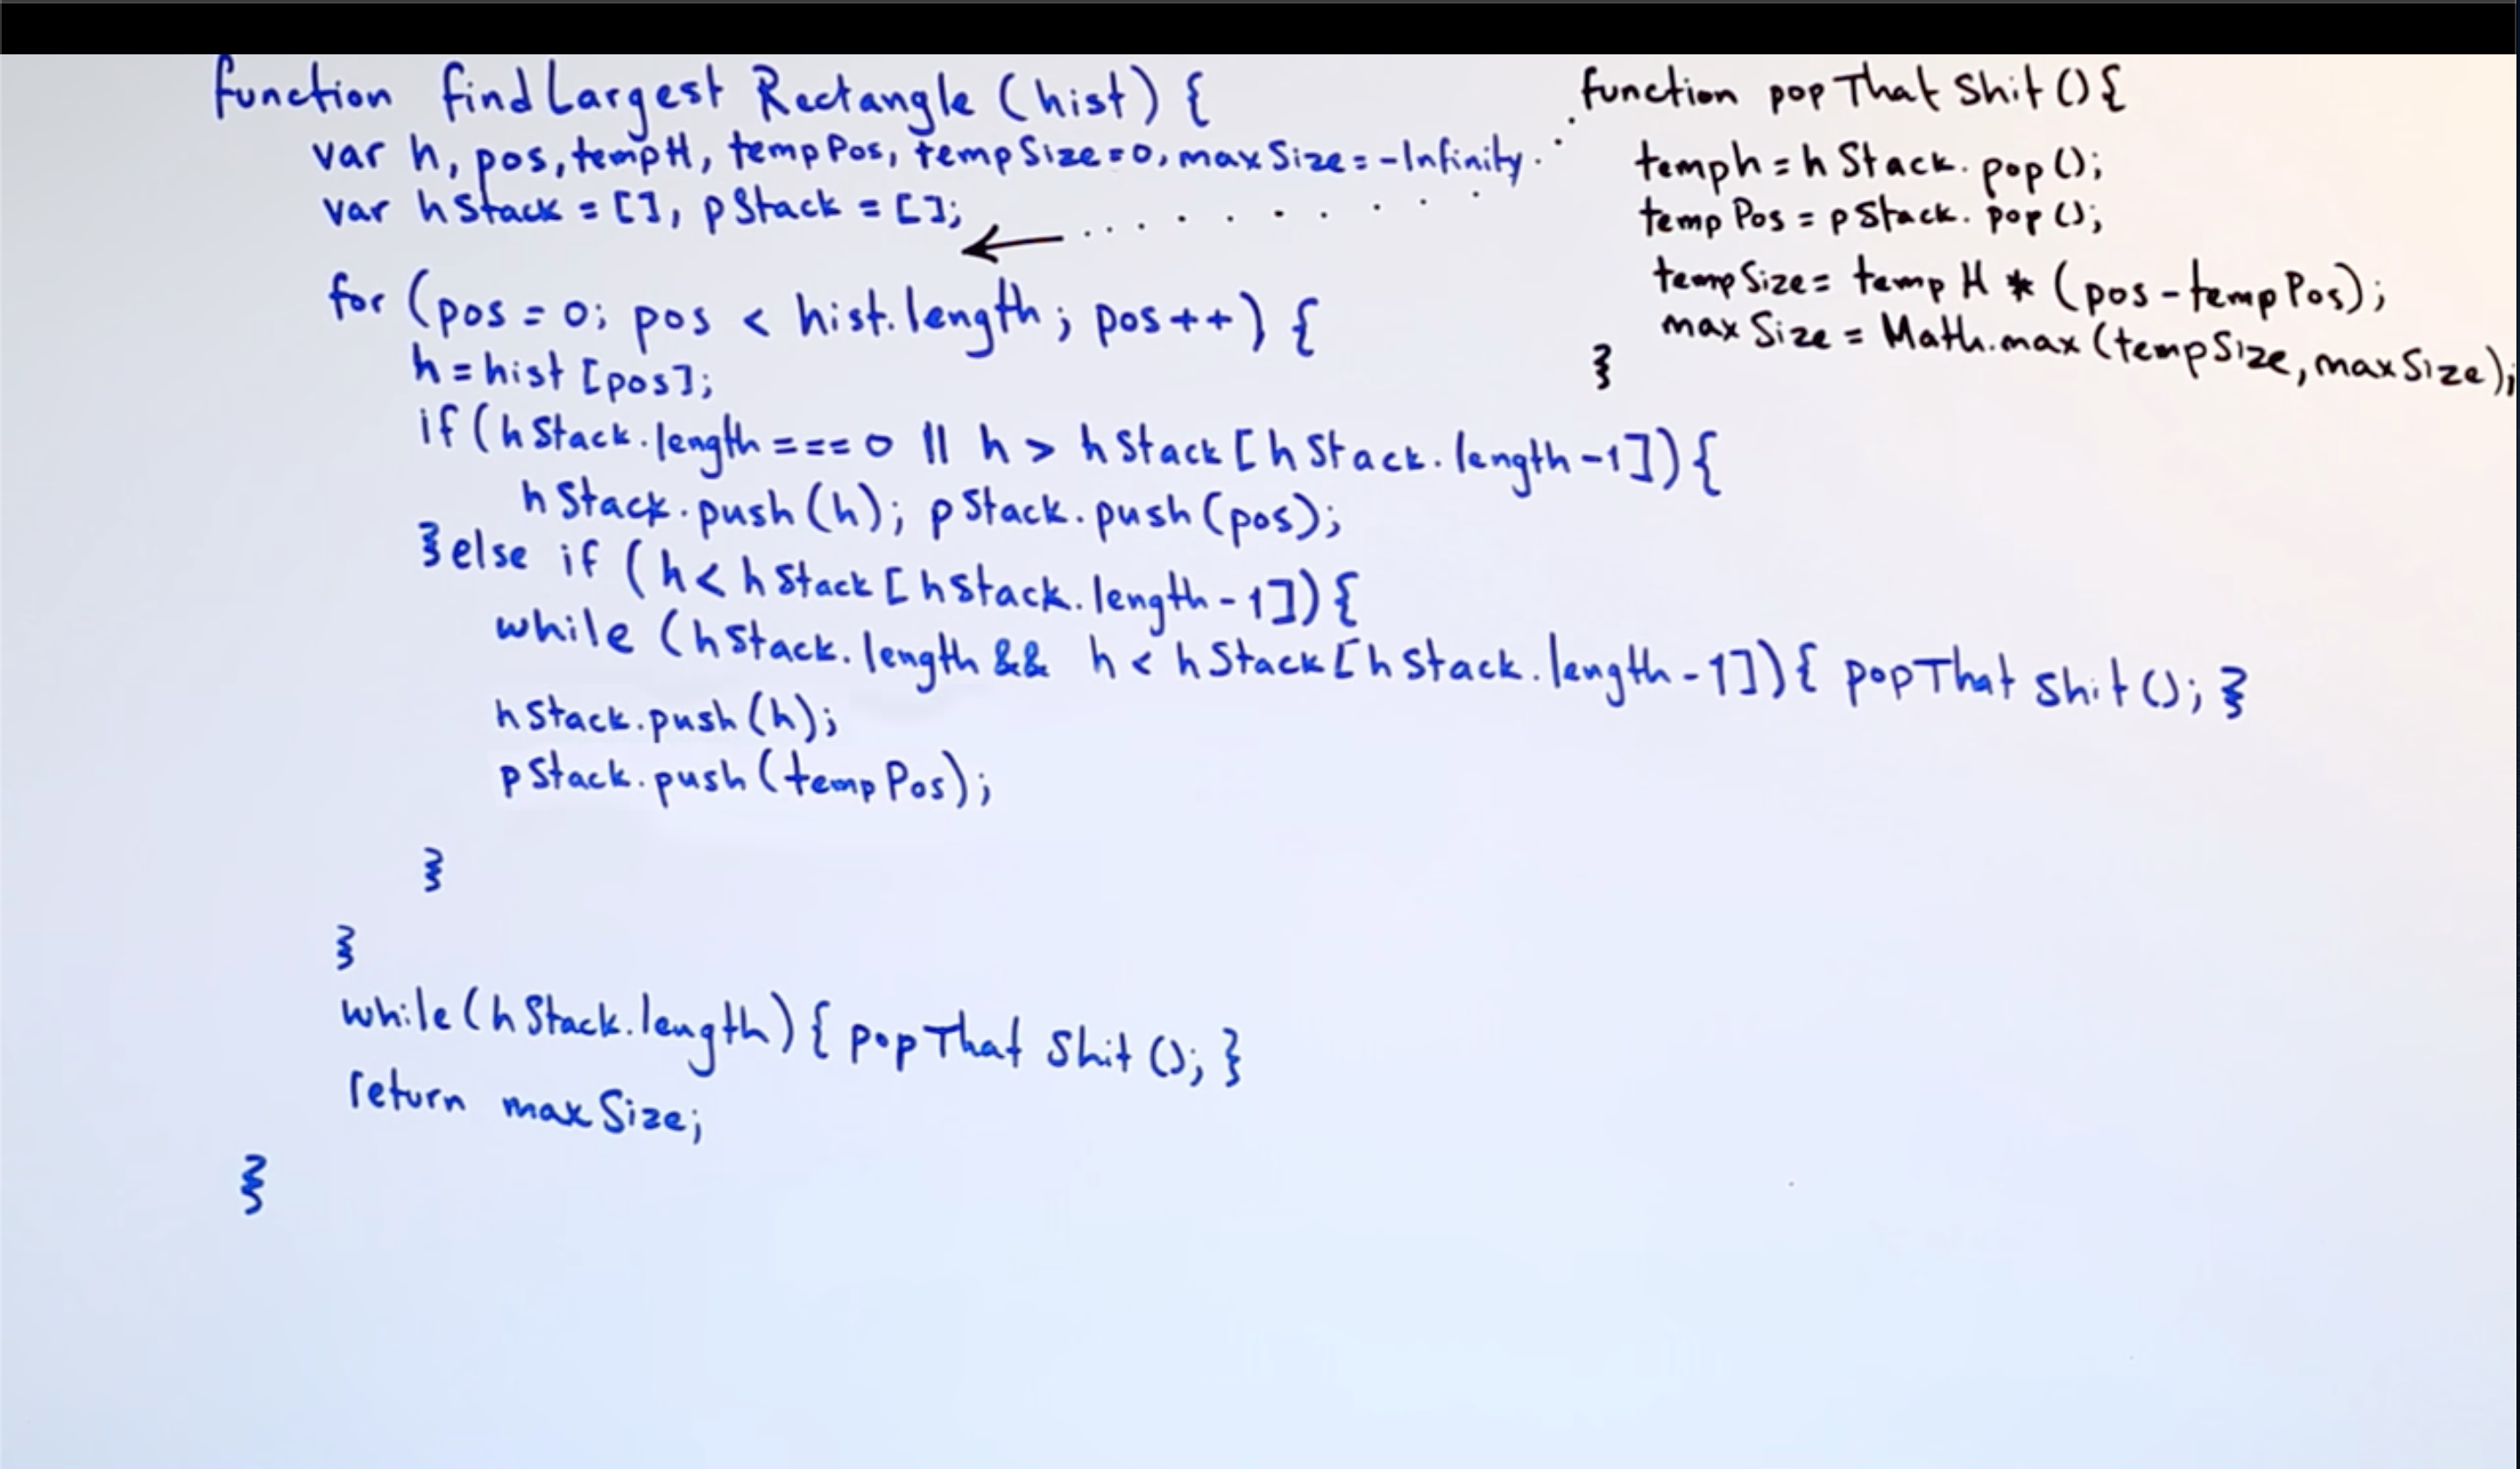 function findLargestRectangle (hist) {
var h, pos, tempH, tempPos, tempSize=0, maxSize=-Infinity.
var hStack = [], pStack = [];
for (pos = 0; pos < hist.length; pos++) {
h = hist [pos];
if (hStack.length === 0 || h > hStack [hStack.length-1]) {
hStack.push(h); pStack.push(pos);
} else if (h < hStack [hStack.length-1]) {
while (hStack.length && h < hStack[hStack.length-1]) { popThatShit(); }
hStack.push(h);
pStack.push(tempPos);
}
}
while(hStack.length) { popThatShit(); }
return maxSize;
}
function popThatShit () {
temph = hStack.pop();
tempPos = pStack.pop();
tempSize = tempH * (pos - tempPos);
maxSize = Math.max (tempSize, maxSize);
}